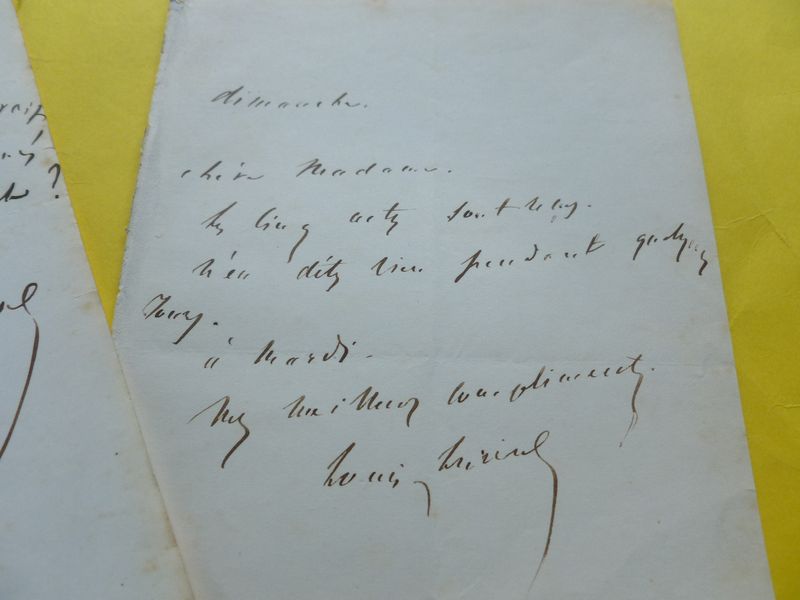 dimanche.
chère Madame.
les cinq actes sont lus.
n'en dites rien pendant quelques
jours.
à mardi.
Mes meilleurs compliments.
Louis
?